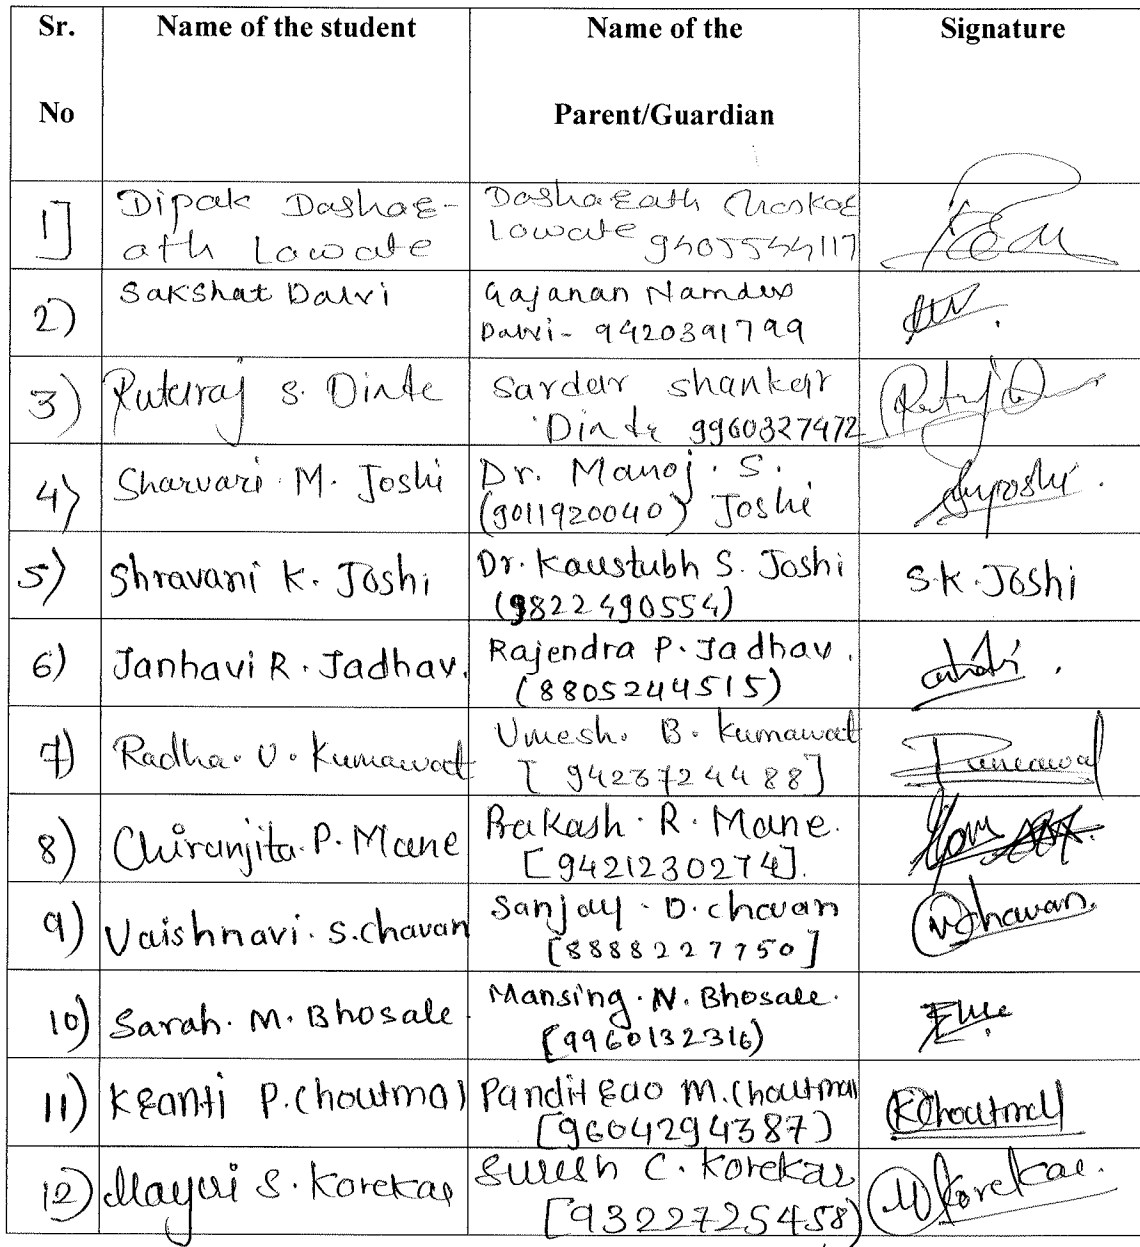 Sr. No
Name of the student
Name of the Parent/Guardian
Signature
1]
Dipak Dashar-
ath Lawate
Dasharath
Lawate 9405544117
2)
Sakshat Dalvi
Gajanan Namdev
Dalvi - 9420391799
3)
Ruturaj S. Dinde
Sardar Shankar
Dinde 9960327472
4)
Sharvari M. Joshi
Dr. Manoj. S.
(9011920040) Joshi
5)
Shravani K. Joshi
Dr. Kaustubh S. Joshi
(9822490554)
S.K. Joshi
6)
Janhavi R. Jadhav.
Rajendra P. Jadhav.
(8805244515)
7)
Radha. U. Kumawat
Umesh. B. Kumawat
[9423724488]
8)
Chiranjita. P. Mane
Prakash. R. Mane.
[9421230274].
9)
Vaishnavi. S. Chavan
Sanjay. D. Chavan
[8888227750]
10)
Sarah. M. Bhosale
Mansing. N. Bhosale.
(9960132316)
11)
Kranti P. Choutmal
Panditrao M. Choutmal
[9604294387)
KChoutmal
12)
Mayuri S. Korekar
Suresh C. Korekar
[9322725458)
M Korekar.